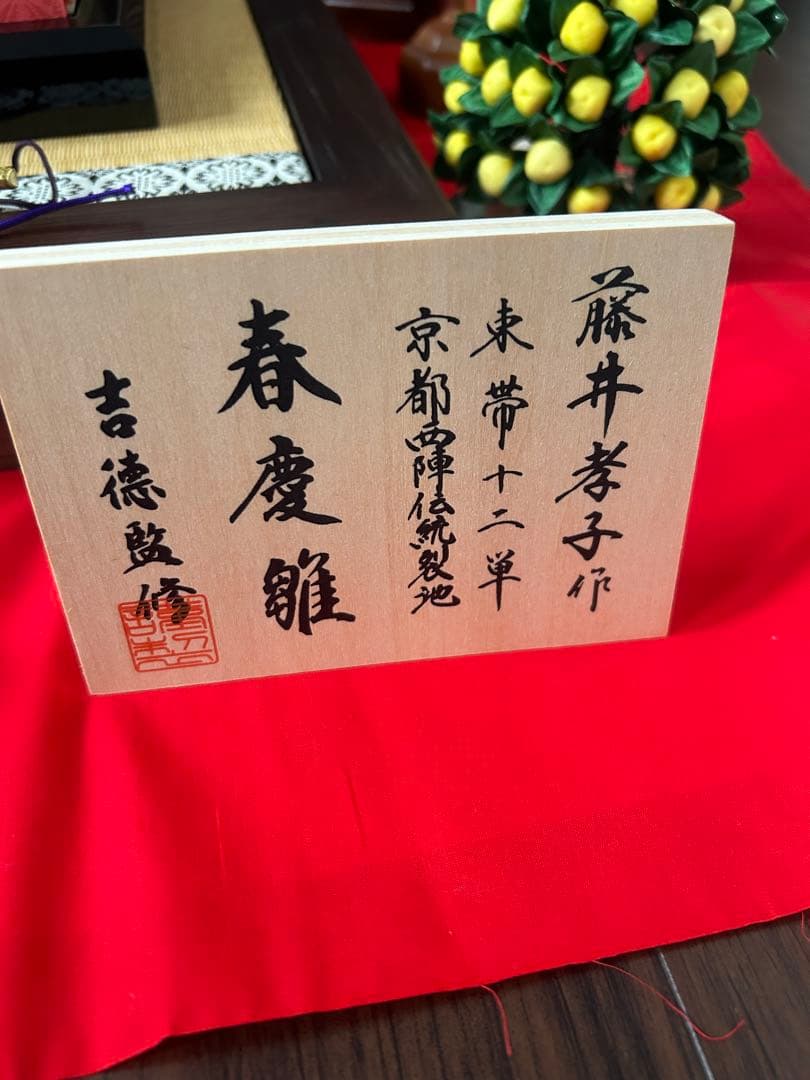 藤井孝子作
束帯十二単
京都西陣伝統裂地
春慶雛
吉德監修